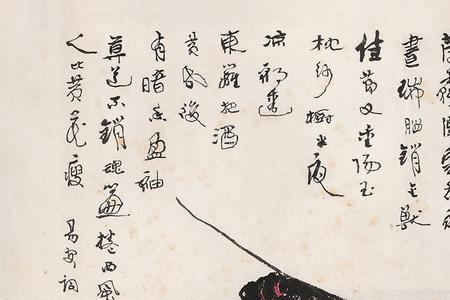 晝瑞腦銷金獸
佳節又重陽玉
枕紗櫥半夜
涼初透
東籬把酒
黃昏後
有暗香盈袖
莫道不銷魂簾捲西風
人比黃花瘦 易安詞